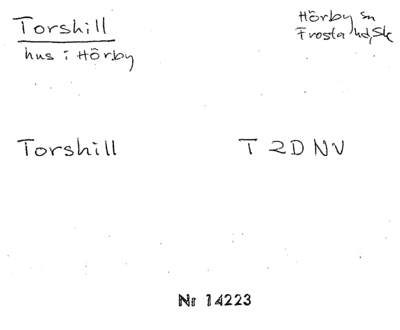 Torshill
hus i Hörby
Hörby sn
Frosta hd, Sk
Torshill
T 2D NV
Nr 14223